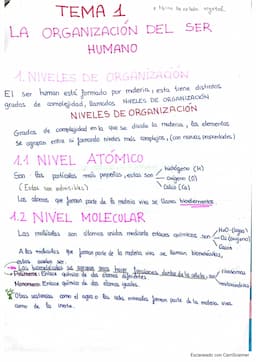 TEMA 1
LA ORGANIZACIÓN DEL SER
HUMANO
1. NIVELES DE ORGANIZACIÓN
El ser humano está formado por materia, y esta tiene distintos
grados de complejidad, llamados NIVELES DE ORGANIZACIÓN
NIVELES DE ORGANIZACIÓN
Grados de complejidad en la que se divide la materia, los elementos
se agrupan entre si formando niveles más complejos, (con nuevas propiedades)
1.1 NIVEL ATÓMICO
Son las partículas más pequeñas, estas son
hidrógeno (H)
oxígeno (O)
Calcio (Ca)
(Estas son indivisibles)
Los átomos que forman parte de la materia viva se llama bioelementos
1.2 NIVEL MOLECULAR
Las moléculas son átomos unidos mediante enlaces químicos, son
H₂O (agua)
O₂ (oxígeno)
A las moléculas que forman parte de la materia viva se llaman, biomoléculas,
estas pueden ser:
Las biomoléculas se agrupan para hacer funciones dentro de la célula, son
Polímeros: Enlace química de dos átomos diferentes
Monómeros: Enlace química de dos átomos iguales.
Otras sustancias como el agua o las sales minerales forman parte de la materia viva
como de la inerte.
Escaneado con CamScanner